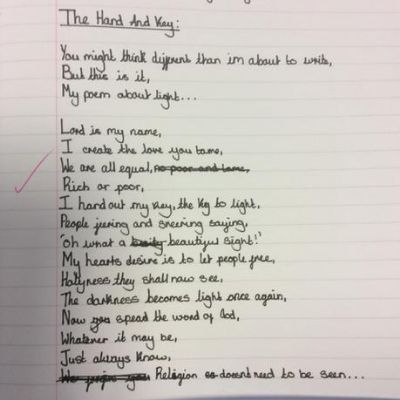 The Hand And Key:
You might think different than im about to write,
But this is it,
My poem about light...
Lord is my name,
I create the love you tame,
We are all equal, no poor and lame,
Rich or poor,
I hard out my key, the key to light,
People jeering and sneering saying,
'Oh what a beautiful sight!'
My hearts desire is to let people free,
Holyness they shall now see,
The darkness becomes light once again,
Now you spead the word of God,
Whatever it may be,
Just always know,
We forgive you Religion so doesnt need to be seen...